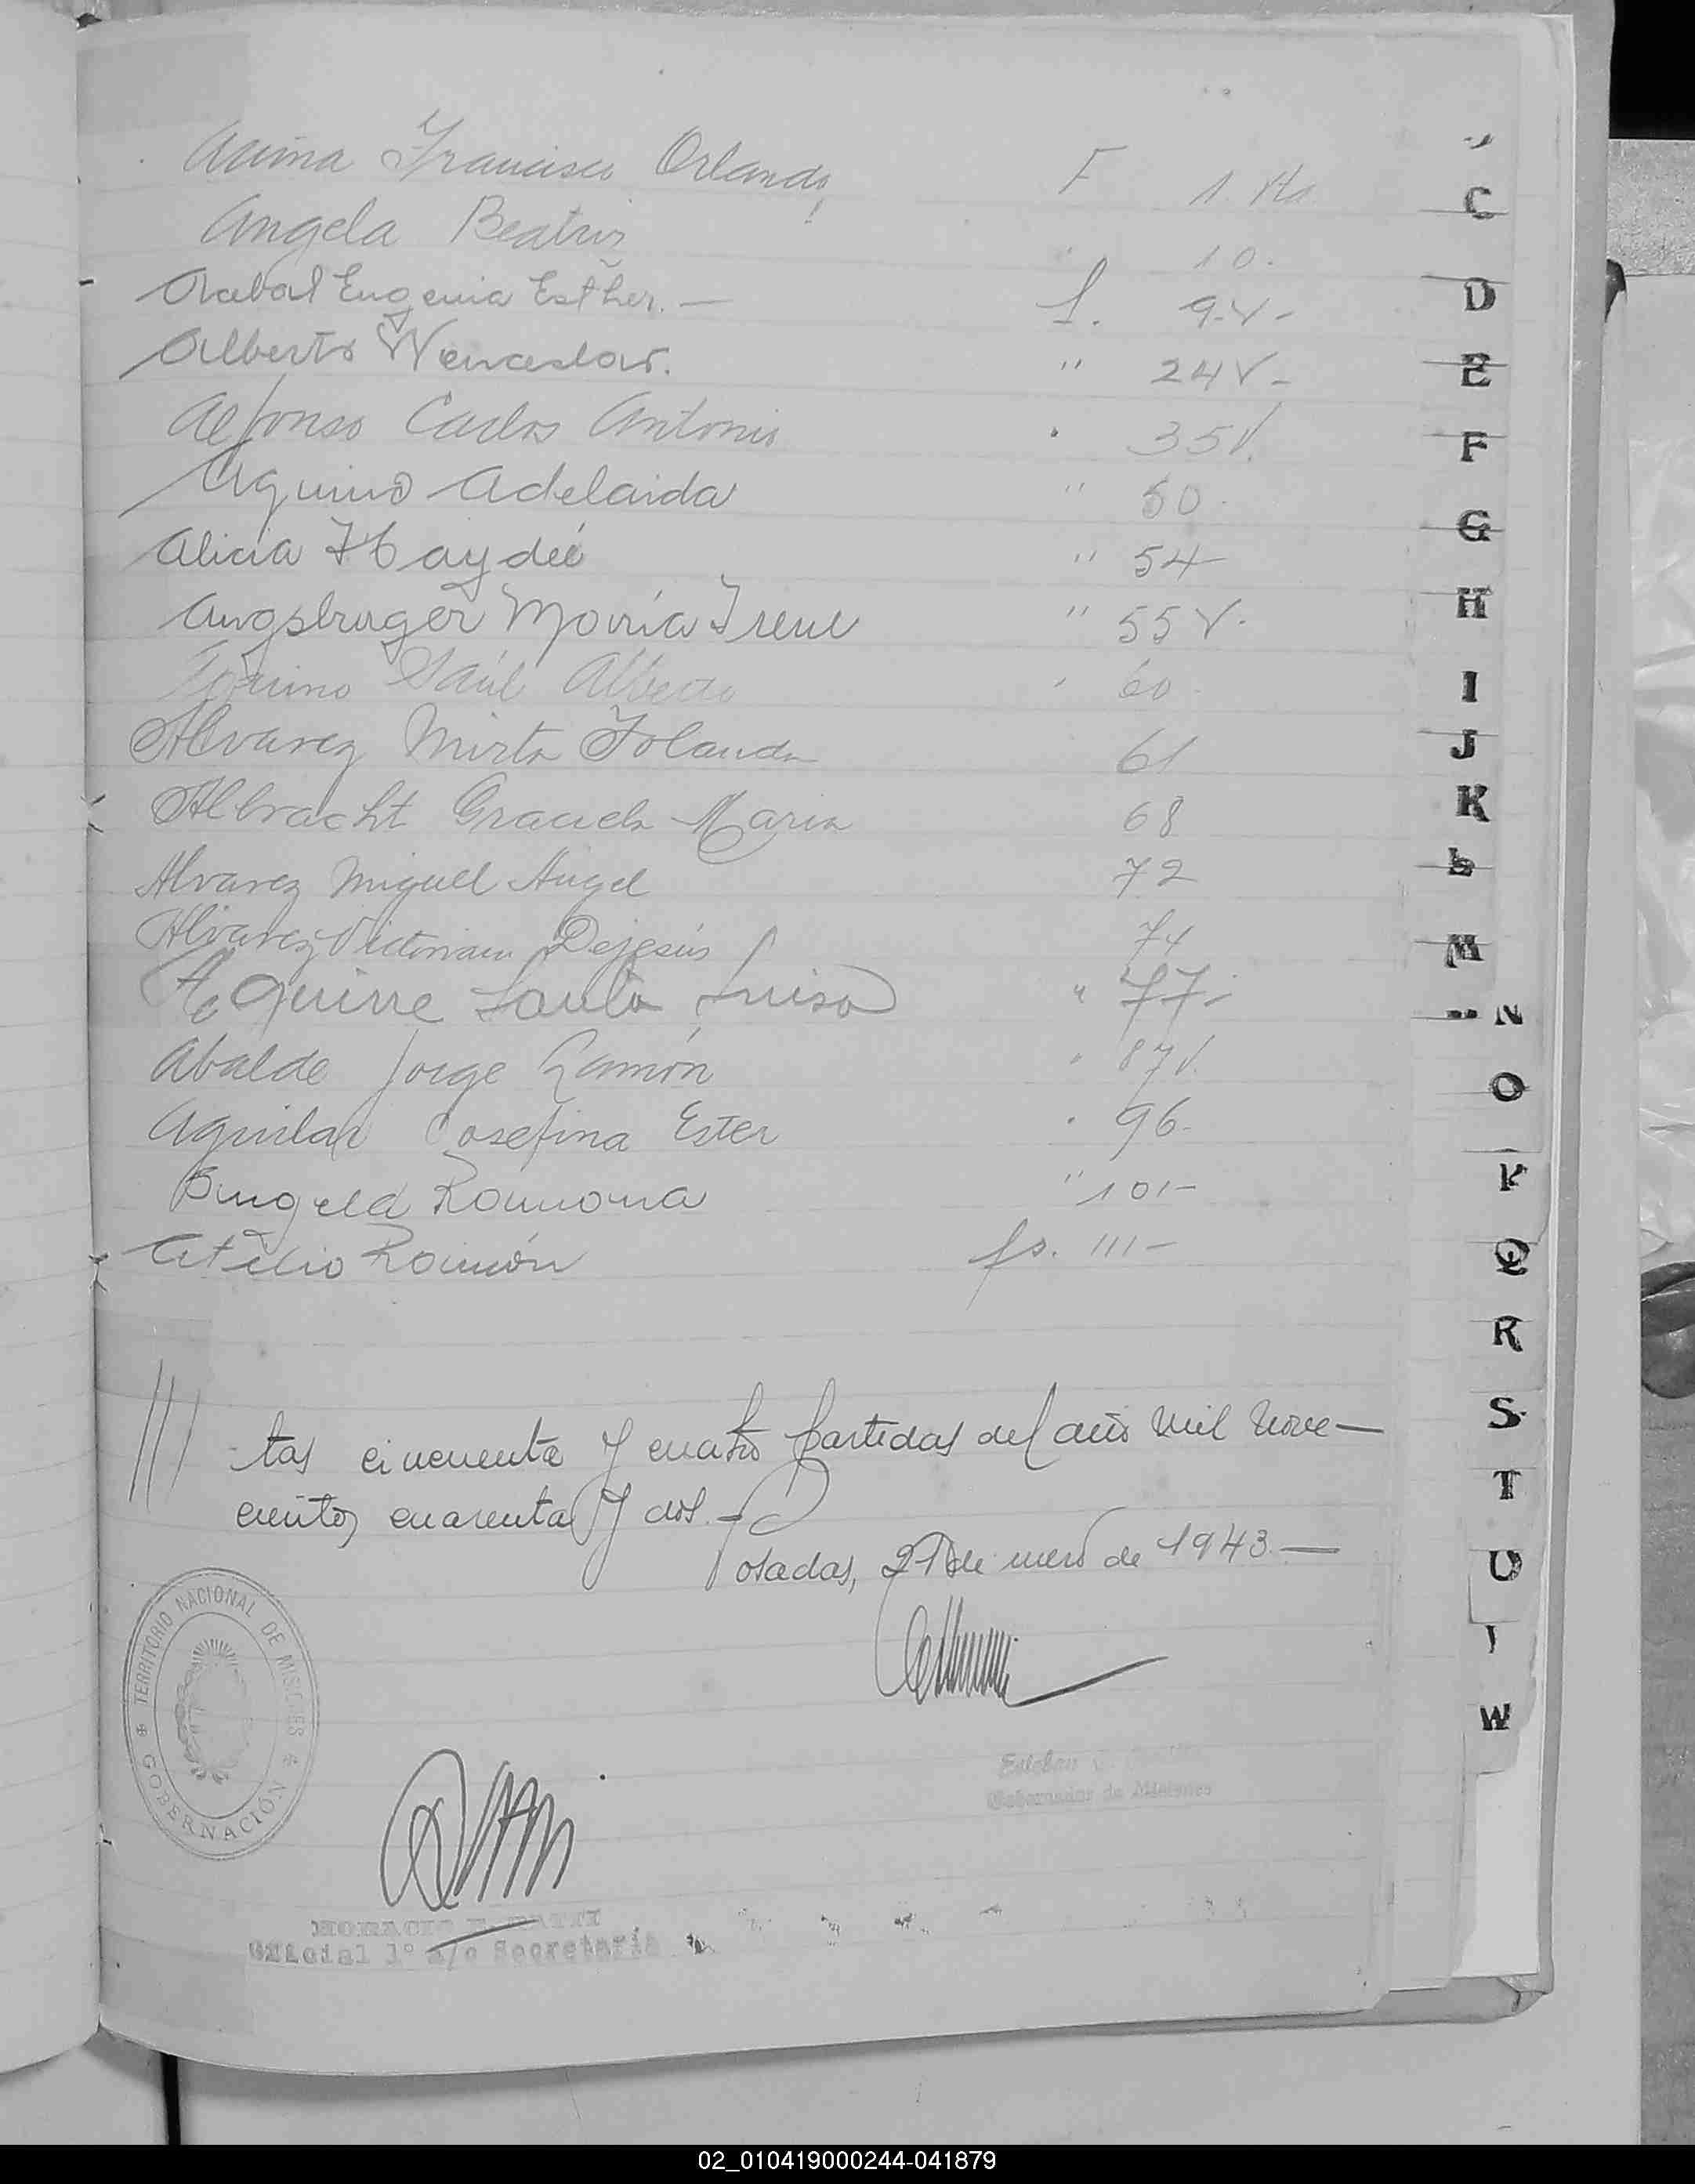 Acuña Francisco Orlando, F 1. Vta
Angela Beatriz " 10.
Acabal Eugenia Esther. — f. 9.v-
Alberto Wenceslao. " 24 V-
Alfonso Carlos Antonio " 35 V.
Aquino Adelaida " 50.
Alicia Haydeé " 54-
Augsburger María Irene " 55 V.
Saúl Alberto " 60
Alvarez Mirta Yolanda 61
Albracht Graciela Maria 68
Alvarez Miguel Angel 72
Alvarez Victoriano Dejesús 74
Aguirre Santa Luisa " 77-
Abalde Jorge Ramón " 87 V.
Aguilar Josefina Ester " 96-
Angela Ramona " 101-
Atilio Ramón fs. 111-
/// tas cincuenta y cuatro partidas del año mil nove-
cientos cuarenta y dos.-
Posadas, 21 de enero de 1943.—
TERRITORIO NACIONAL DE MISIONES
GOBERNACIÓN
Esteban
Gobernador de Misiones
HORACIO
Oficial 1° a/c Secretaría
C
D
E
F
G
H
I
J
K
L
M
N
O
P
Q
R
S
T
U
W
02_010419000244-041879